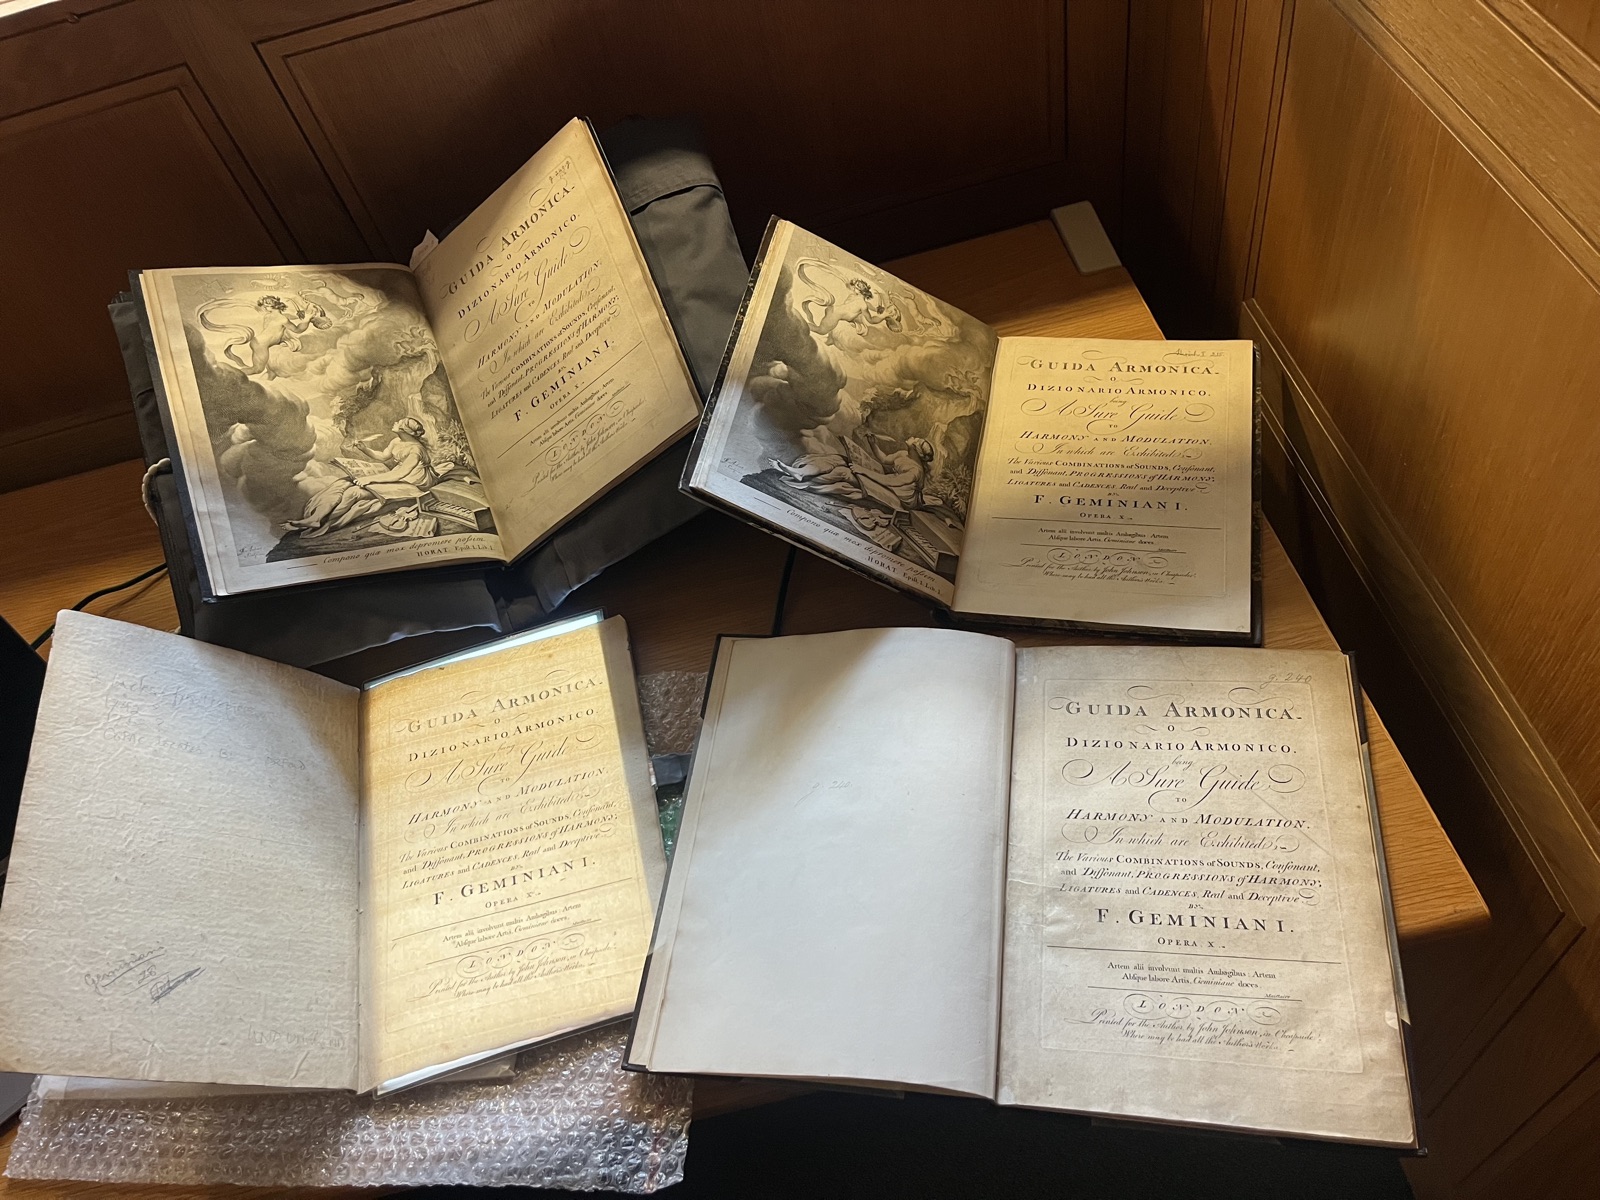 GUIDA ARMONICA.
O
DIZIONARIO ARMONICO.
being
A Sure Guide
TO
HARMONY AND MODULATION.
In which are Exhibited,
The Various COMBINATIONS of SOUNDS, Consonant,
and Dissonant, PROGRESSIONS of HARMONY,
LIGATURES and CADENCES, Real and Deceptive
BY
F. GEMINIANI.
OPERA X.
Artem alii involvunt multis Ambagibus: Artem
Absque labore Artis, Geminiane doces.
LONDON
Printed for the Author by John Johnson, in Cheapside,
Where may be had all the Authors Works.
Compono quæ mox depromere possem
HORAT. Epist. I. Lib. I.
GUIDA ARMONICA.
O
DIZIONARIO ARMONICO.
being
A Sure Guide
TO
HARMONY AND MODULATION.
In which are Exhibited,
The Various COMBINATIONS of SOUNDS, Consonant,
and Dissonant, PROGRESSIONS of HARMONY,
LIGATURES and CADENCES, Real and Deceptive
BY
F. GEMINIANI.
OPERA X.
Artem alii involvunt multis Ambagibus: Artem
Absque labore Artis, Geminiane doces.
LONDON
Printed for the Author by John Johnson, in Cheapside,
Where may be had all the Authors Works.
Compono quæ mox depromere possem
HORAT. Epist. I. Lib. I.
Geminiani
18
GUIDA ARMONICA.
O
DIZIONARIO ARMONICO.
being
A Sure Guide
TO
HARMONY AND MODULATION.
In which are Exhibited,
The Various COMBINATIONS of SOUNDS, Consonant,
and Dissonant, PROGRESSIONS of HARMONY,
LIGATURES and CADENCES, Real and Deceptive
BY
F. GEMINIANI.
OPERA X.
Artem alii involvunt multis Ambagibus: Artem
Absque labore Artis, Geminiane doces.
LONDON
Printed for the Author by John Johnson, in Cheapside,
Where may be had all the Authors Works.
g. 240
g. 240
GUIDA ARMONICA.
O
DIZIONARIO ARMONICO.
being
A Sure Guide
TO
HARMONY AND MODULATION.
In which are Exhibited,
The Various COMBINATIONS of SOUNDS, Consonant,
and Dissonant, PROGRESSIONS of HARMONY,
LIGATURES and CADENCES, Real and Deceptive
BY
F. GEMINIANI.
OPERA X.
Artem alii involvunt multis Ambagibus: Artem
Absque labore Artis, Geminiane doces.
LONDON
Printed for the Author by John Johnson, in Cheapside,
Where may be had all the Authors Works.